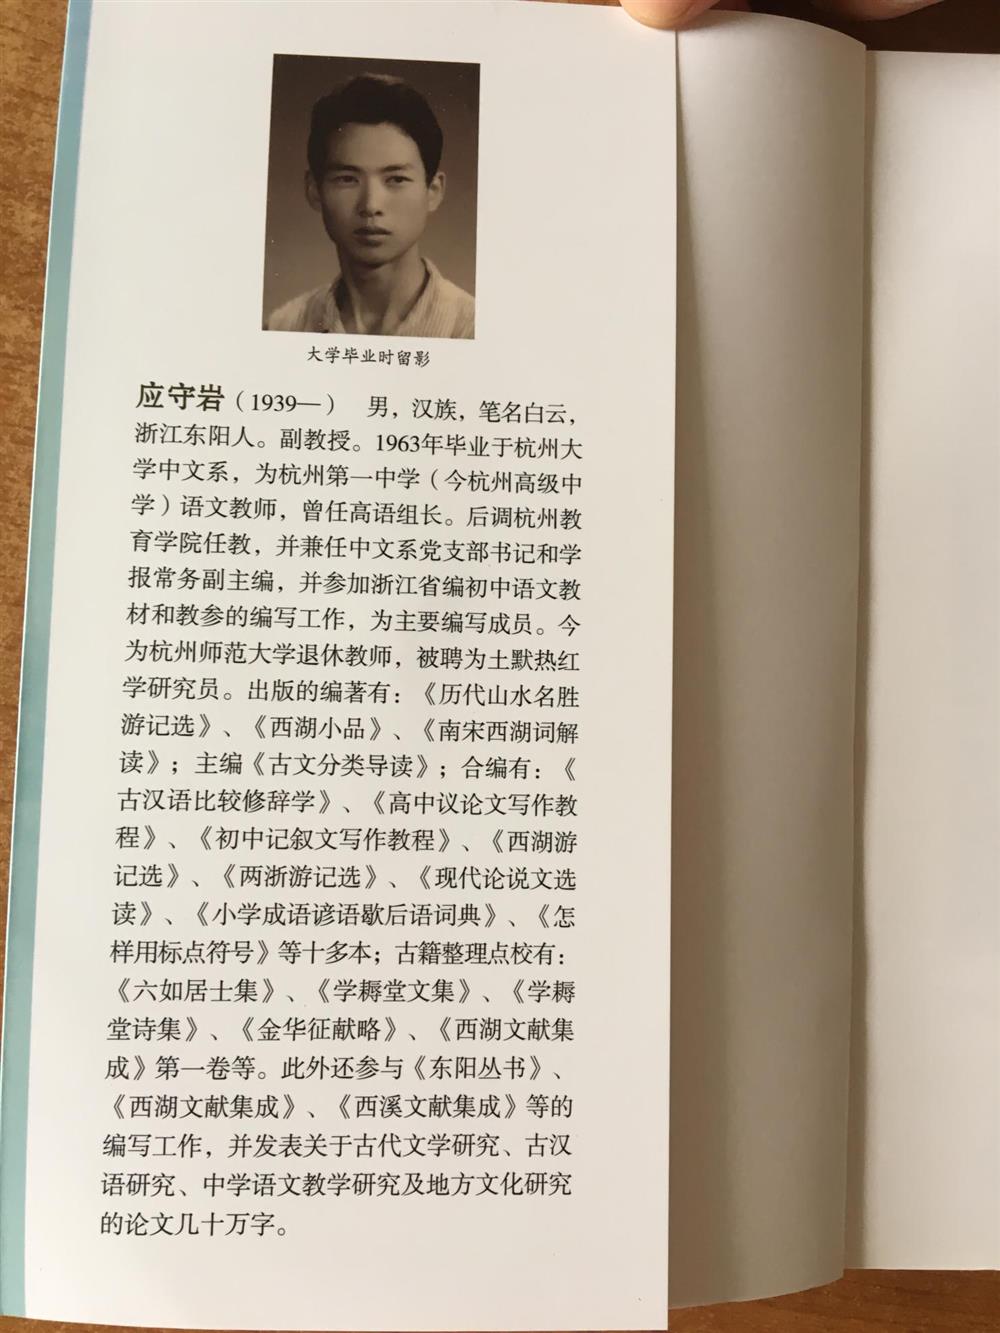 大学毕业时留影
应守岩（1939—） 男，汉族，笔名白云，
浙江东阳人。副教授。1963年毕业于杭州大
学中文系，为杭州第一中学（今杭州高级中
学）语文教师，曾任高语组长。后调杭州教
育学院任教，并兼任中文系党支部书记和学
报常务副主编，并参加浙江省编初中语文教
材和教参的编写工作，为主要编写成员。今
为杭州师范大学退休教师，被聘为土默热红
学研究员。出版的编著有：《历代山水名胜
游记选》、《西湖小品》、《南宋西湖词解
读》；主编《古文分类导读》；合编有：《
古汉语比较修辞学》、《高中议论文写作教
程》、《初中记叙文写作教程》、《西湖游
记选》、《两浙游记选》、《现代论说文选
读》、《小学成语谚语歇后语词典》、《怎
样用标点符号》等十多本；古籍整理点校有：
《六如居士集》、《学耨堂文集》、《学耨
堂诗集》、《金华征献略》、《西湖文献集
成》第一卷等。此外还参与《东阳丛书》、
《西湖文献集成》、《西溪文献集成》等的
编写工作，并发表关于古代文学研究、古汉
语研究、中学语文教学研究及地方文化研究
的论文几十万字。